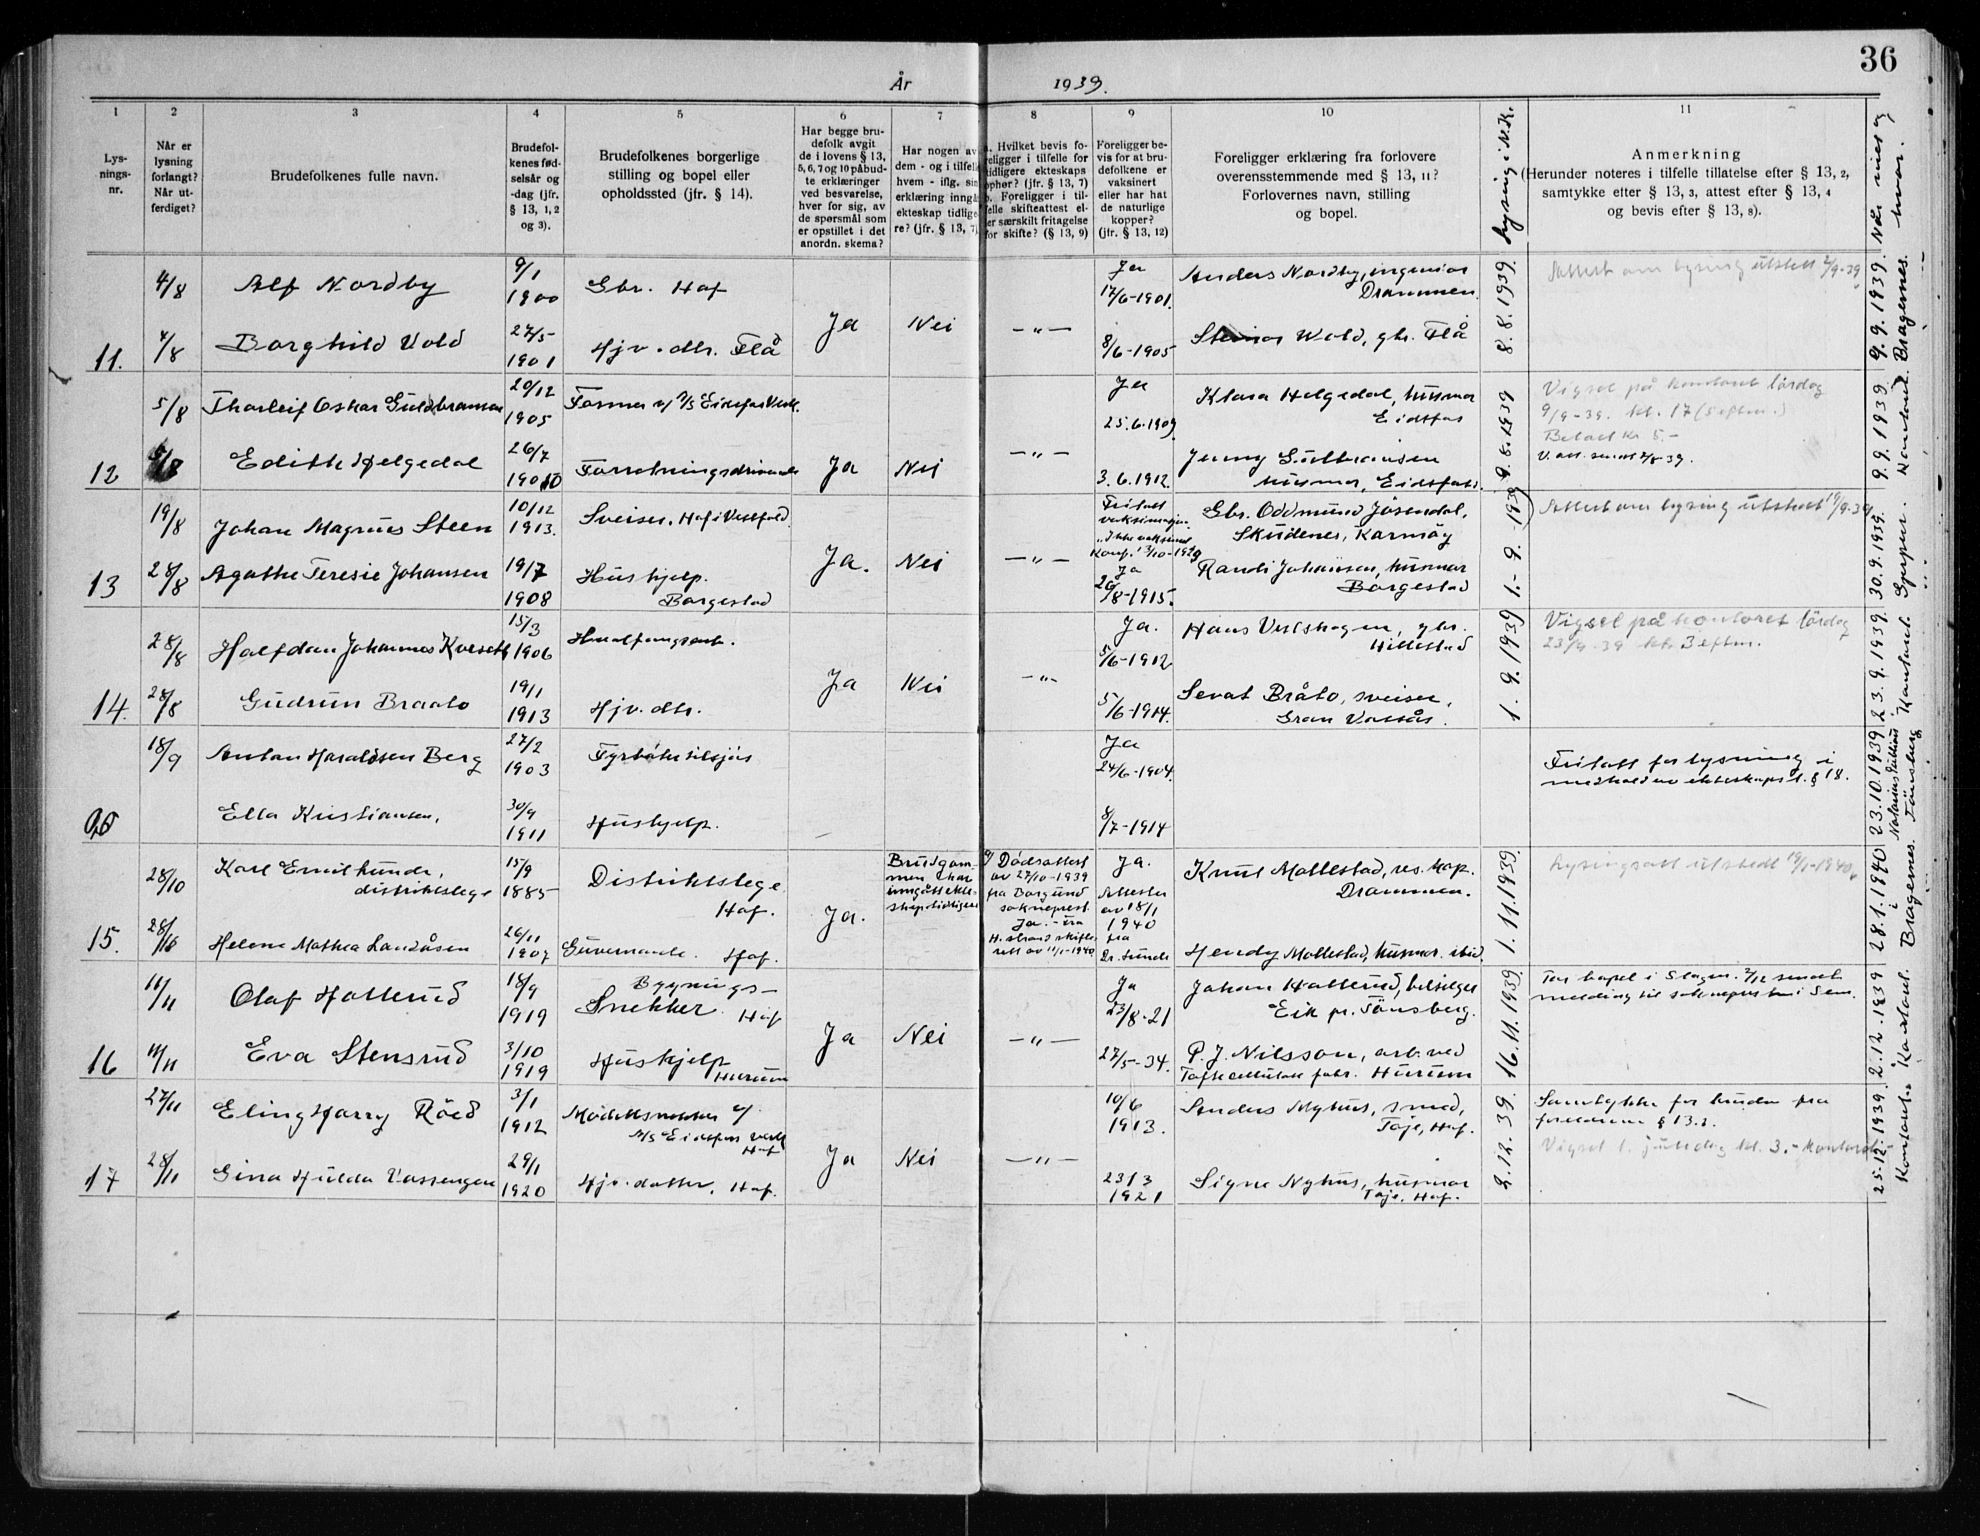 36
År 1939.
1 2 3 4 5 6 7 8 9 10 11
Lys-
nings-
nr.
Når er
lysning
forlangt?
Når ut-
ferdiget?
Brudefolkenes fulle navn.
Brudefol-
kenes fød-
selsår og
-dag (jfr.
§ 13, 1, 2
og 3).
Brudefolkenes borgerlige
stilling og bopel eller
opholdssted (jfr. § 14).
Har begge bru-
defolk avgit
de i lovens § 13,
5, 6, 7 og 10 påbud-
te erklæringer
ved besvarelse,
hver for sig, av
de spørsmål som
er opstillet i det
anordn. skema?
Har nogen av
dem - og i tilfelle
hvem - iflg. sin
erklæring inngå
ekteskap tidlige-
re? (jfr. § 13, 7)
Hvilket bevis fo-
religger i tilfelle for
tidligere ekteskaps
ophør? (jfr. § 13, 7)
b. Foreligger i til-
felle skifteattest el-
ler særskilt fritagelse
for skifte? (§ 13, 9)
Foreligger be-
vis for at bru-
defolkene er
vaksinert
eller har hat
de naturlige
kopper?
(jfr. § 13, 12)
Foreligger erklæring fra forlovere
overensstemmende med § 13, 11?
Forlovernes navn, stilling
og bopel.
Lysing i N.K.
Anmerkning
(Herunder noteres i tilfelle tillatelse efter § 13, 2,
samtykke efter § 13, 3, attest efter § 13, 4
og bevis efter § 13, 8).
Når viet og hvor.
11.
4/8 Alf Nordby 9/1 1900 Gbr. Hof
4/8 Borghild Vold 27/5 1901 Hjv. dtr. Flå
Ja Nei —"—
Ja 17/6-1901.
8/6-1905
Anders Nordby, ingeniør
Drammen.
Steinar Wold, gbr. Flå
8.8.1939.
Attest om lysing utstedt 2/9-39
9.9.1939. Bragernes.
12
5/8 Thorleif Oskar Guldbransen 20/12 1905 Former v/ A/S Eidsfos Verk.
5/8 Edith Helgedal 26/7 1910 Forretningsdrivende
Ja Nei —"—
Ja 25.6.1909
3.6.1912.
Klara Helgedal, husmor
Eidsfos
Jenny Guldbransen
husmor, Eidsfoss.
9.8.1939
Vigsel på kontoret lördag
9/9-39. kl. 17 (5 eftm.)
Betalt kr 5.-
9.9.1939. Kontoret.
13
19/8 Johan Magnus Steen 10/12 1913. Sveiser. Hof i Vestfold.
28/8 Agathe Teresie Johansen 19/7 1908 Hushjelp.
Borgestad
Ja. Nei —"—
Fritatt
vaksinasjon.
"Ikke vaksinert
Konf. 13/10-1929
Ja
20/8-1915.
Gbr. Oddmund Jøsendal,
Skudenes, Karmöy
Randi Johansen, husmor
Borgestad
1.-9.-1939
Attest om lysing utstedt 19/9-39
30.9.1939. Gjerpen.
14.
28/8 Halfdan Johannes Kverseth 15/3 1906 Hvalfangstarb.
28/8 Gudrun Braato 19/1 1913 Hjv. dtr.
Ja Nei —"—
Ja.
5/6-1912
5/6-1914.
Hans Vestskogen, gbr.
Hillestad
Sevat Bråto, sveiser,
Gran Vassås.
1.9.1939
Vigsel på kontoret lördag
23/9-39 kl. 3 eftm.
23.9.1939. Kontoret.
18/9 Anton Haraldsen Berg 27/2 1903 Fyrbøter tilsjøs
Ella Kristiansen, 30/9 1911 Hushjelp.
Ja
24/6-1904.
8/7-1914
Fritatt for lysning i
medhold av ekteskapsl. § 18.
23.10.1939 Notarius Publicus i Tönsberg
15.
28/10 Karl Emil Lunde,
distriktslege 15/9 1885 Distriktslege
Hof.
28/10 Helene Mathea Landåsen 26/11 1907 Guvernante. Hof.
Ja.
Brudgom-
men har
inngått ekte-
skap tidligere
a/ Dødsattest
av 27/10-1939
fra Borgund
sokneprest.
Ja. - fra
skifte-
rett av 11/1-1940
Ja.
Attester
av 18/1
1940
fra
Dr. Lunde
Knut Mollestad, res. kap.
Drammen.
Hendy Mollestad, husmor. ibid.
1.11.1939.
Lysingsatt utstedt 19/1-1940.
28.1.1940 Bragernes.
16
14/11 Olaf Hallerud 18/9 1919 Bygnings-
Snekker. Hof
14/11 Eva Stensrud 3/10 1919 Hushjelp
Hurum
Ja Nei —"—
Ja
23/8-21
27/5-34.
Johan Hallerud, bilselger
Eik pr. Tönsberg.
P. J. Nilsson, arb. ved
Tofte cellulose fabr. Hurum
16.11.1939
Tar bopel i Slagen. 2/12 sendt
melding til sokneprsten i Sem.
2.12.1939 Kontoret.
17
27/11 Eling Harry Röed 3/1 1912 Modellsnekker v/
A/S Eidsfoss Verk
Hof
28/11 Gina Hulda Vassengen 29/1 1920 Hjv. datter, Hof.
Ja Nei —"—
10/6
1913.
23/3
1921
Anders Nyhus, smed,
Toje, Hof.
Signe Nyhus, husmor
Toje. Hof.
2.12.39.
Samtykke for bruden fra
foreldrene § 13.3.
Vigsel 1. juledag kl. 3. - kontoret -
25.12.1939. Kontoret.